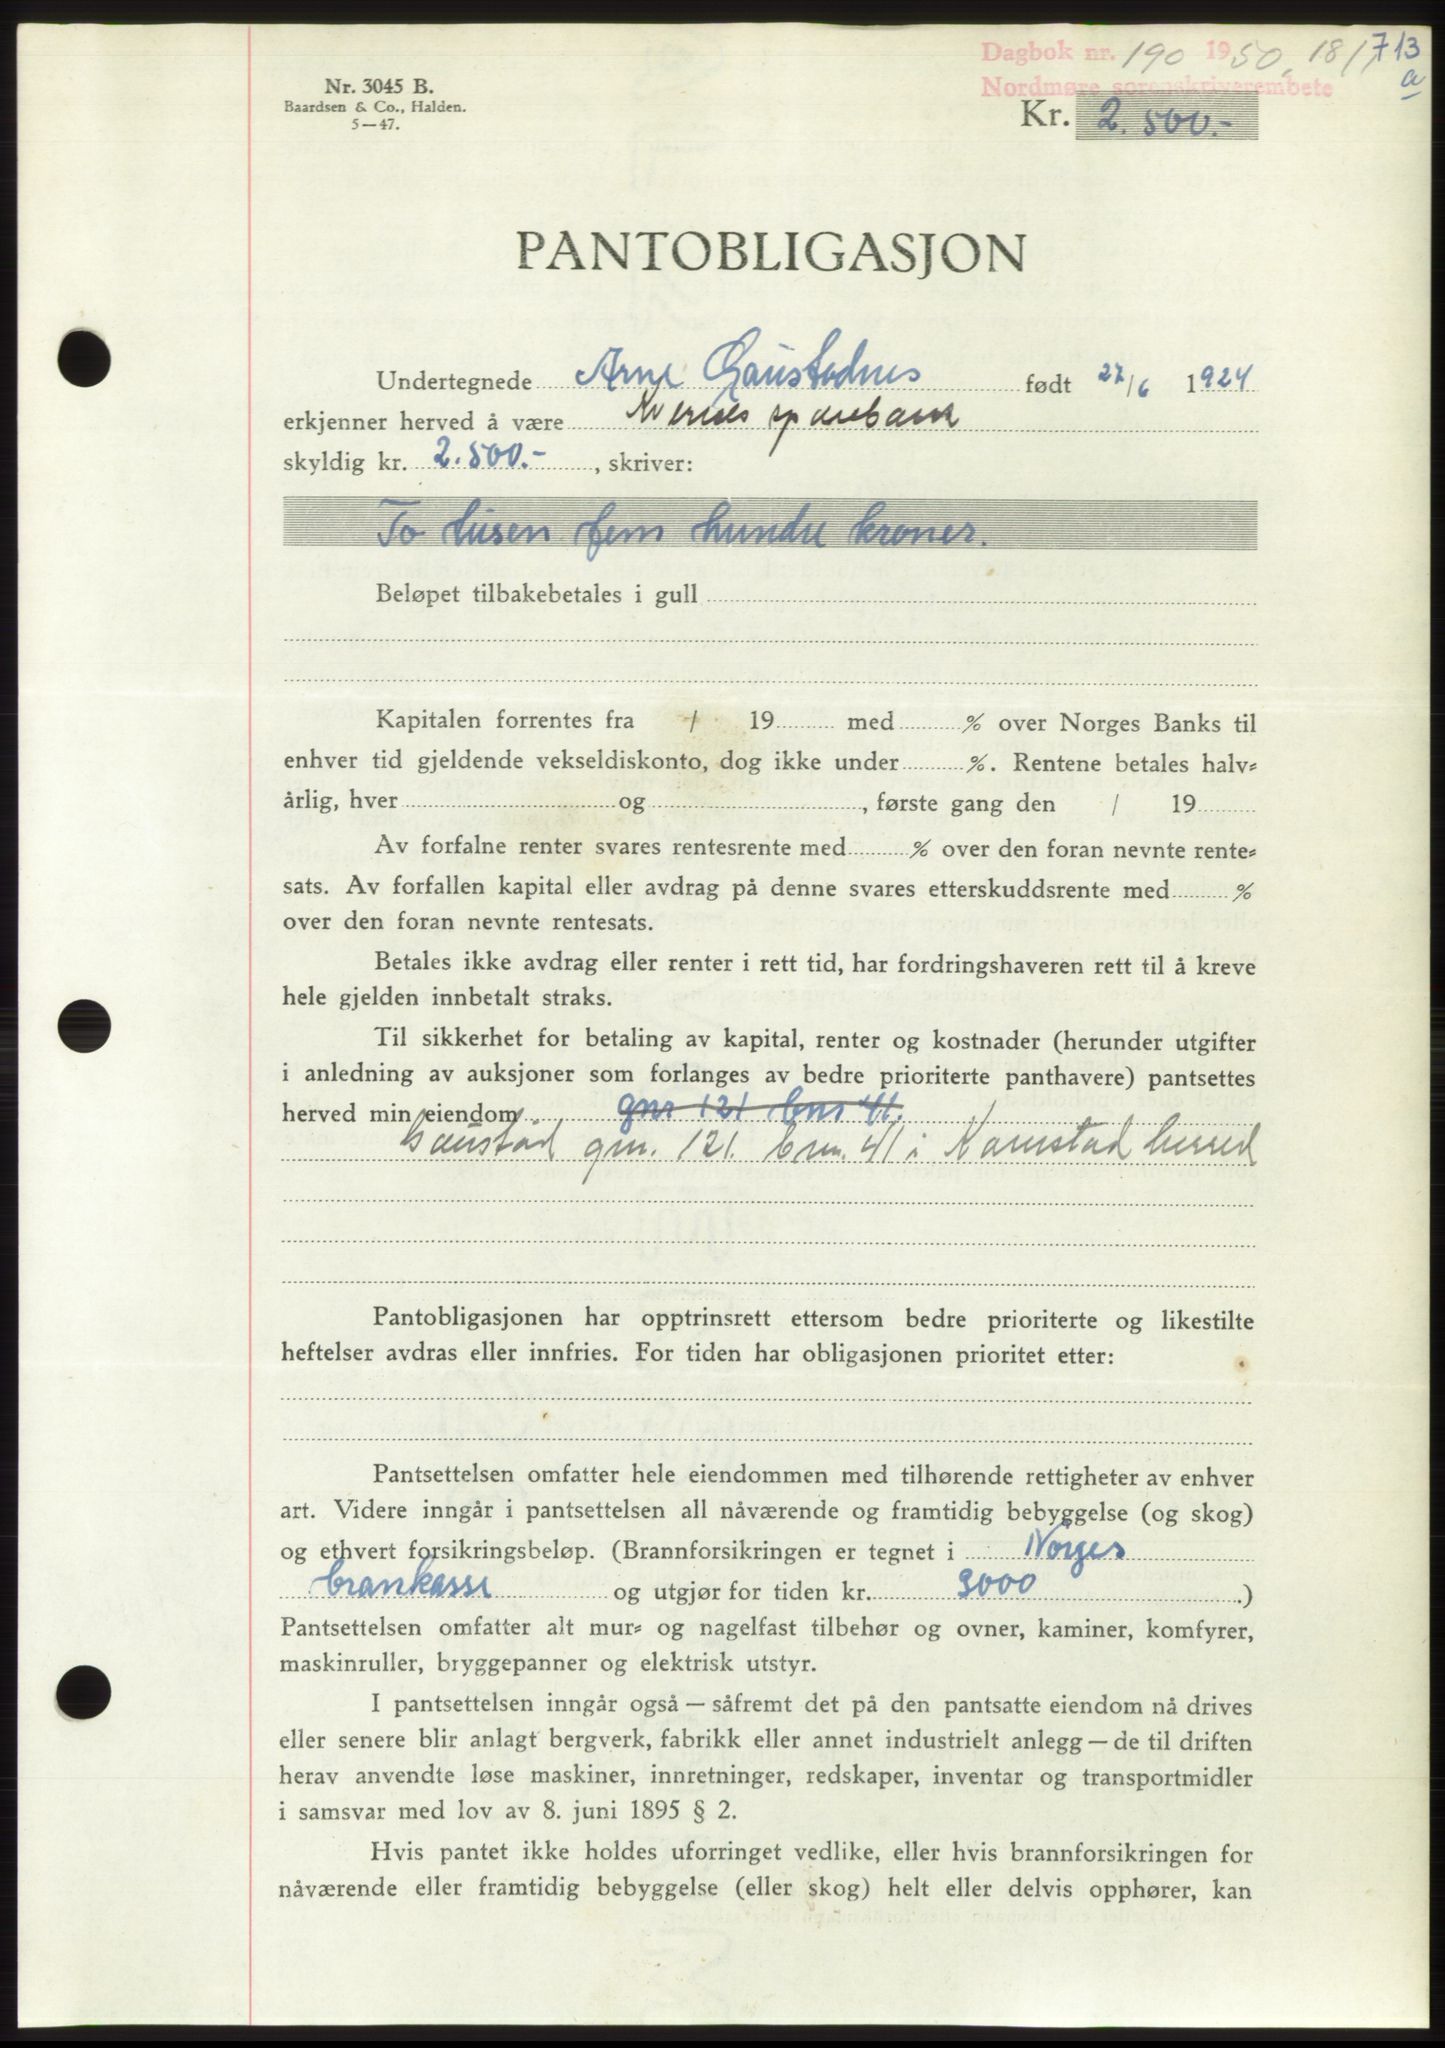 Dagbok nr. 190 1950, 18/1 713
a
Nordmøre sorenskriverembete
Nr. 3045 B.
Baardsen & Co., Halden.
5—47.
Kr. 2.500.-
PANTOBLIGASJON
Undertegnede Arne Gaustadnes født 27/6 1924
erkjenner herved å være Kvernes sparebank
skyldig kr. 2.500.- , skriver:
To tusen fem hundre kroner.
Beløpet tilbakebetales i gull
Kapitalen forrentes fra / 19 med % over Norges Banks til
enhver tid gjeldende vekseldiskonto, dog ikke under %. Rentene betales halv-
årlig, hver og , første gang den / 19
Av forfalne renter svares rentesrente med % over den foran nevnte rente-
sats. Av forfallen kapital eller avdrag på denne svares etterskuddsrente med %
over den foran nevnte rentesats.
Betales ikke avdrag eller renter i rett tid, har fordringshaveren rett til å kreve
hele gjelden innbetalt straks.
Til sikkerhet for betaling av kapital, renter og kostnader (herunder utgifter
i anledning av auksjoner som forlanges av bedre prioriterte panthavere) pantsettes
herved min eiendom gnr 121 bnr 41.
Gaustad gnr. 121. bnr. 41 i Kornstad herred
Pantobligasjonen har opptrinsrett ettersom bedre prioriterte og likestilte
heftelser avdras eller innfries. For tiden har obligasjonen prioritet etter:
Pantsettelsen omfatter hele eiendommen med tilhørende rettigheter av enhver
art. Videre inngår i pantsettelsen all nåværende og framtidig bebyggelse (og skog)
og ethvert forsikringsbeløp. (Brannforsikringen er tegnet i Norges
brankasse og utgjør for tiden kr. 9000 .)
Pantsettelsen omfatter alt mur- og nagelfast tilbehør og ovner, kaminer, komfyrer,
maskinruller, bryggepanner og elektrisk utstyr.
I pantsettelsen inngår også — såfremt det på den pantsatte eiendom nå drives
eller senere blir anlagt bergverk, fabrikk eller annet industrielt anlegg — de til driften
herav anvendte løse maskiner, innretninger, redskaper, inventar og transportmidler
i samsvar med lov av 8. juni 1895 § 2.
Hvis pantet ikke holdes uforringet vedlike, eller hvis brannforsikringen for
nåværende eller framtidig bebyggelse (eller skog) helt eller delvis opphører, kan